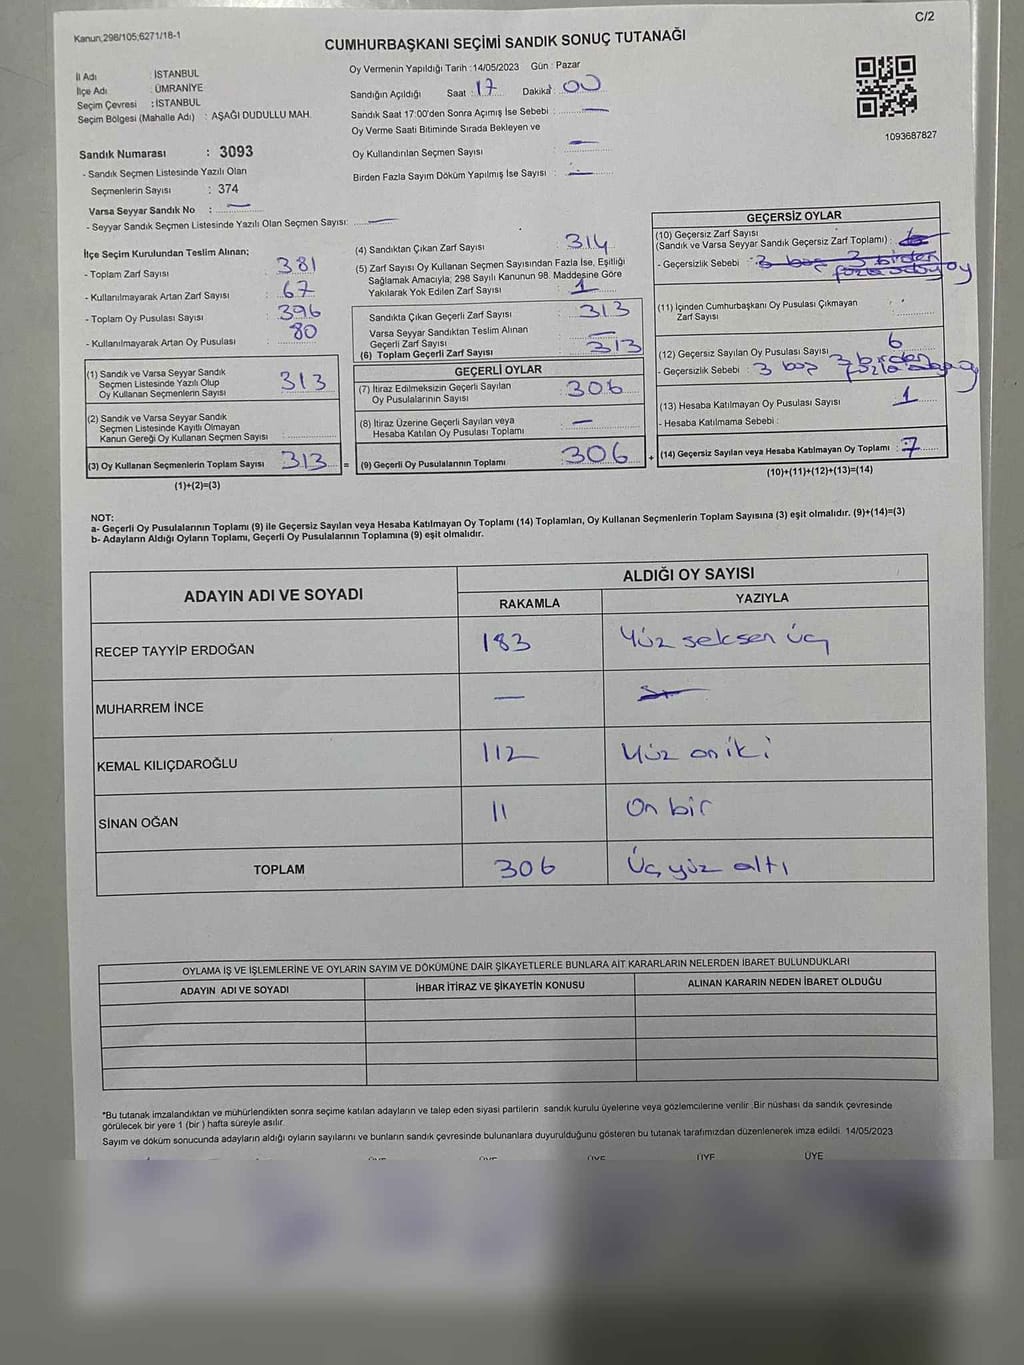 C/2
Kanun,298/105;6271/18-1
CUMHURBAŞKANI SEÇİMİ SANDIK SONUÇ TUTANAĞI
İl Adı : İSTANBUL
İlçe Adı : ÜMRANİYE
Seçim Çevresi : İSTANBUL
Seçim Bölgesi (Mahalle Adı) : AŞAĞI DUDULLU MAH.
Sandık Numarası : 3093
- Sandık Seçmen Listesinde Yazılı Olan
Seçmenlerin Sayısı : 374
Varsa Seyyar Sandık No : —
- Seyyar Sandık Seçmen Listesinde Yazılı Olan Seçmen Sayısı: —
Oy Vermenin Yapıldığı Tarih :14/05/2023 Gün : Pazar
Sandığın Açıldığı Saat : 17 Dakika : 00
Sandık Saat 17:00'den Sonra Açımış İse Sebebi : —
Oy Verme Saati Bitiminde Sırada Bekleyen ve
Oy Kullandırılan Seçmen Sayısı : —
Birden Fazla Sayım Döküm Yapılmış İse Sayısı : —
1093687827
İlçe Seçim Kurulundan Teslim Alınan;
- Toplam Zarf Sayısı : 381
- Kullanılmayarak Artan Zarf Sayısı : 67
- Toplam Oy Pusulası Sayısı : 396
- Kullanılmayarak Artan Oy Pusulası : 80
(1) Sandık ve Varsa Seyyar Sandık
Seçmen Listesinde Yazılı Olup
Oy Kullanan Seçmenlerin Sayısı : 313
(2) Sandık ve Varsa Seyyar Sandık
Seçmen Listesinde Kayıtlı Olmayan
Kanun Gereği Oy Kullanan Seçmen Sayısı :
(3) Oy Kullanan Seçmenlerin Toplam Sayısı : 313 =
(1)+(2)=(3)
(4) Sandıktan Çıkan Zarf Sayısı : 314
(5) Zarf Sayısı Oy Kullanan Seçmen Sayısından Fazla İse, Eşitliği
Sağlamak Amacıyla; 298 Sayılı Kanunun 98. Maddesine Göre
Yakılarak Yok Edilen Zarf Sayısı : 1
Sandıkta Çıkan Geçerli Zarf Sayısı : 313
Varsa Seyyar Sandıktan Teslim Alınan
Geçerli Zarf Sayısı : —
(6) Toplam Geçerli Zarf Sayısı : 313
GEÇERLİ OYLAR
(7) İtiraz Edilmeksizin Geçerli Sayılan
Oy Pusulalarının Sayısı : 306
(8) İtiraz Üzerine Geçerli Sayılan veya
Hesaba Katılan Oy Pusulaları Toplamı : —
(9) Geçerli Oy Pusulalarının Toplamı : 306 +
GEÇERSİZ OYLAR
(10) Geçersiz Zarf Sayısı
(Sandık ve Varsa Seyyar Sandık Geçersiz Zarf Toplamı) :
- Geçersizlik Sebebi : 3 boş 3 birden
fazla oy
(11) İçinden Cumhurbaşkanı Oy Pusulası Çıkmayan
Zarf Sayısı :
(12) Geçersiz Sayılan Oy Pusulası Sayısı : 6
- Geçersizlik Sebebi : 3 boş 3 birden
(13) Hesaba Katılmayan Oy Pusulası Sayısı : 1
- Hesaba Katılmama Sebebi :
(14) Geçersiz Sayılan veya Hesaba Katılmayan Oy Toplamı : 7
(10)+(11)+(12)+(13)=(14)
NOT:
a- Geçerli Oy Pusulalarının Toplamı (9) ile Geçersiz Sayılan veya Hesaba Katılmayan Oy Toplamı (14) Toplamları, Oy Kullanan Seçmenlerin Toplam Sayısına (3) eşit olmalıdır. (9)+(14)=(3)
b- Adayların Aldığı Oyların Toplamı, Geçerli Oy Pusulalarının Toplamına (9) eşit olmalıdır.
ADAYIN ADI VE SOYADI ALDIĞI OY SAYISI
RAKAMLA YAZIYLA
RECEP TAYYİP ERDOĞAN 183 Yüz seksen üç
MUHARREM İNCE —
KEMAL KILIÇDAROĞLU 112 Yüz on iki
SİNAN OĞAN 11 On bir
TOPLAM 306 Üç yüz altı
OYLAMA İŞ VE İŞLEMLERİNE VE OYLARIN SAYIM VE DÖKÜMÜNE DAİR ŞİKAYETLERLE BUNLARA AİT KARARLARIN NELERDEN İBARET BULUNDUKLARI
ADAYIN ADI VE SOYADI İHBAR İTİRAZ VE ŞİKAYETİN KONUSU ALINAN KARARIN NEDEN İBARET OLDUĞU
*Bu tutanak imzalandıktan ve mühürlendikten sonra seçime katılan adayların ve talep eden siyasi partilerin sandık kurulu üyelerine veya gözlemcilerine verilir .Bir nüshası da sandık çevresinde
görülecek bir yere 1 (bir ) hafta süreyle asılır.
Sayım ve döküm sonucunda adayların aldığı oyların sayılarını ve bunların sandık çevresinde bulunanlara duyurulduğunu gösteren bu tutanak tarafımızdan düzenlenerek imza edildi. 14/05/2023
ÜYE ÜYE ÜYE ÜYE ÜYE